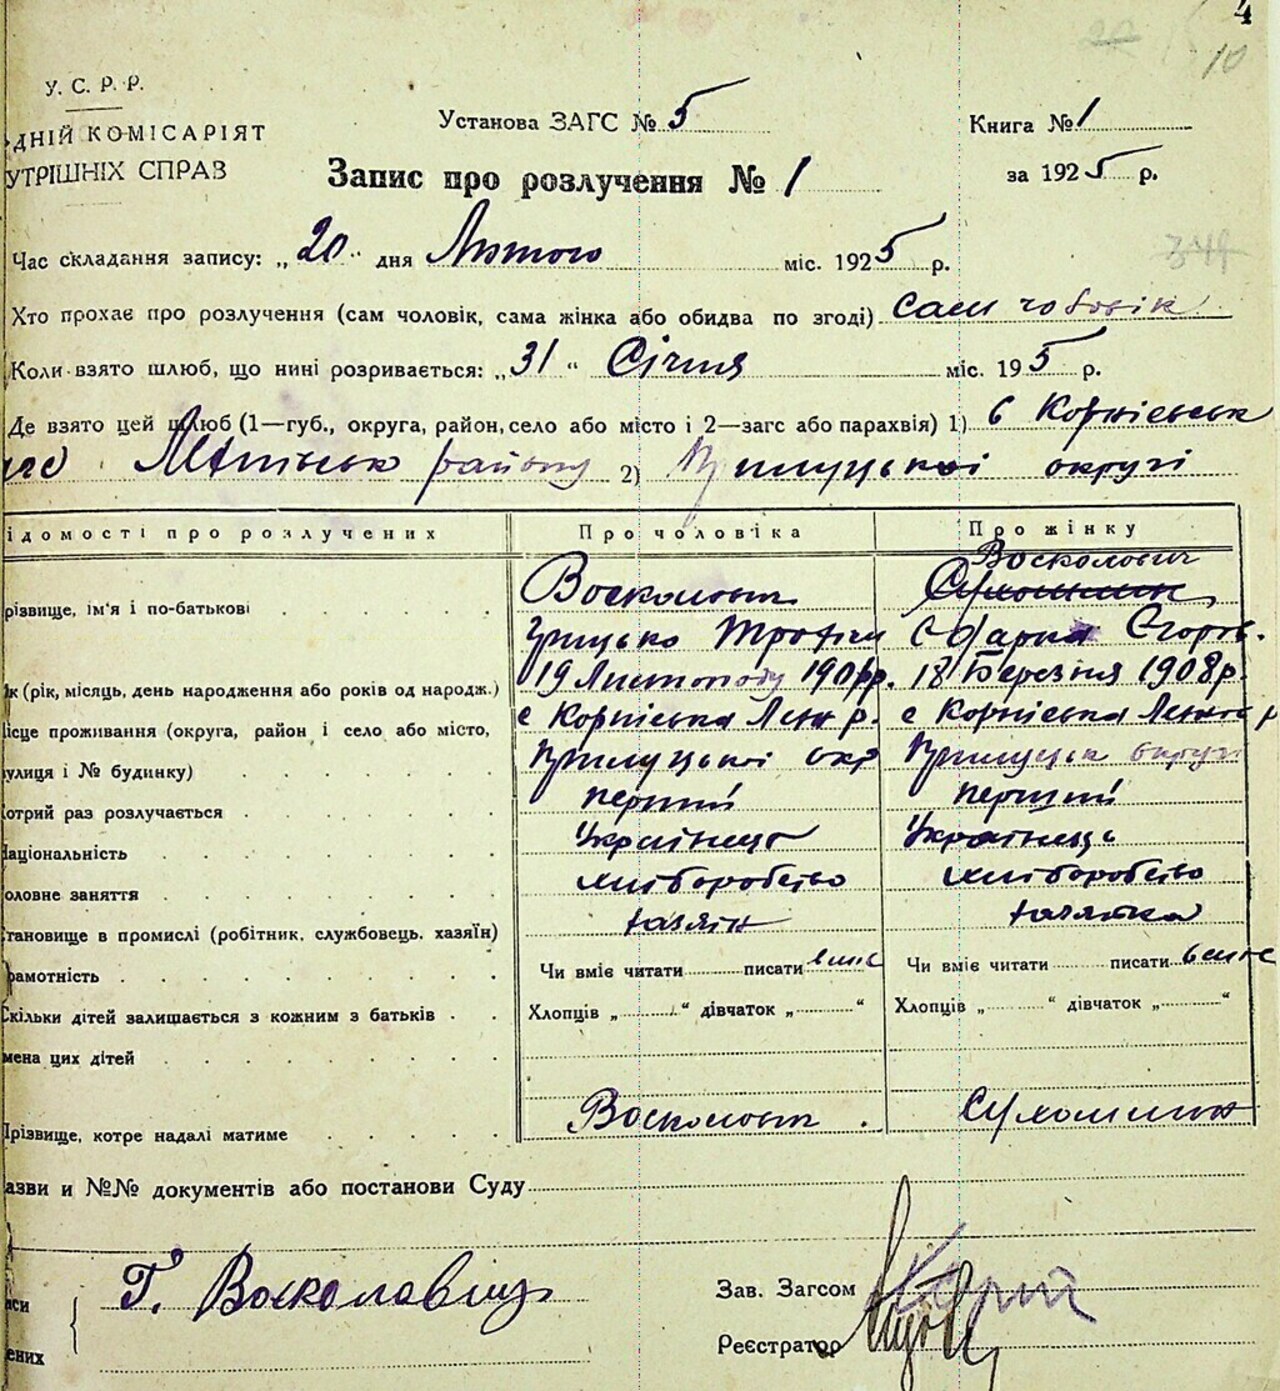 4
10
У. С. Р. Р.
ДНІЙ КОМІСАРІЯТ
УТРІШНІХ СПРАВ
Установа ЗАГС № 5
Книга № 1
Запис про розлучення № 1
за 1925 р.
Час складання запису: „20" дня Лютого міс. 1925 р.
Хто прохає про розлучення (сам чоловік, сама жінка або обидва по згоді) сам чоловік
Коли взято шлюб, що нині розривається: „31" Січня міс. 195 р.
Де взято цей шлюб (1—губ., округа, район, село або місто і 2—загс або парахвія) 1)
району 2) Прилуцької округі
ідомості про розлучених
Про чоловіка
Про жінку
різвище, ім'я і по-батькові
Восколович
Грицько Трофім
Одарка Єгорів.
ік (рік, місяць, день народження або років од народж.)
19 Листопаду
18 Березня 1908 р.
ісце проживання (округа, район і село або місто,
улиця і № будинку)
Прилуцької окр
Прилуцьк округі
отрий раз розлучається
перший
перший
аціональність
Українець
Українець
оловне заняття
хліборобство
хліборобство
тановище в промислі (робітник, службовець, хазяїн)
хазяїн
хазяйка
рамотність
Чи вміє читати писати вміє
Чи вміє читати писати вміє
Скільки дітей залишається з кожним з батьків
Хлопців „ " дівчаток „ "
Хлопців „ " дівчаток „ "
мена цих дітей
Прізвище, котре надалі матиме
азви и №№ документів або постанови Суду
Г. Восколавіш
Зав. Загсом
Реєстратор
иси
ених